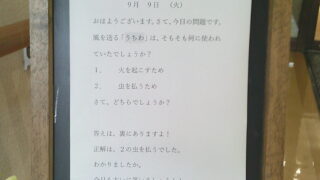 9月 9日 (火)
おはようございます。さて、今日の問題です。
風を送る「うちわ」は、そもそも何に使われ
ていたでしょうか?
1. 火を起こすため
2. 虫を払うため
さて、どちらでしょうか?
答えは、裏にありますよ!
正解は、2の虫を払うでした。
わかりましたか。